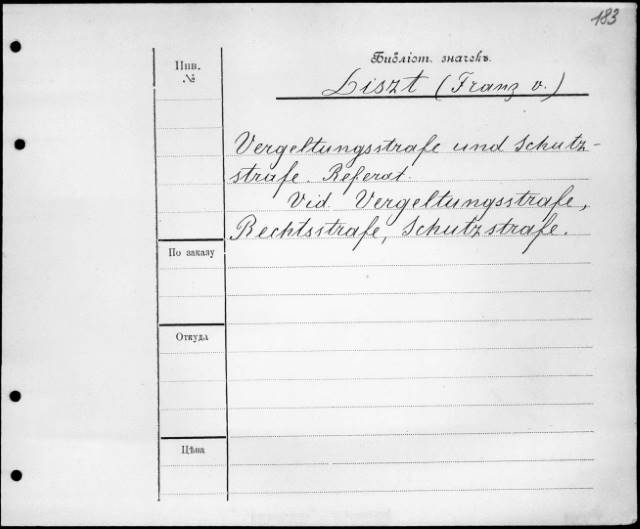 183
Библіот. значекъ.
Инв.
№
Liszt (Franz v.)
Vergeltungsstrafe und Schutz-
strafe. Referat.
Vid. Vergeltungsstrafe,
Rechtsstrafe, Schutzstrafe.
По заказу
Откуда
Цѣна